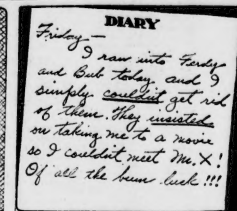 DIARY
Friday –
I ran into Ferdy
and Bub today and I
simply couldn't get rid
of them. They insisted
on taking me to a movie
so I couldn't meet Mr. X!
Of all the bum luck!!!